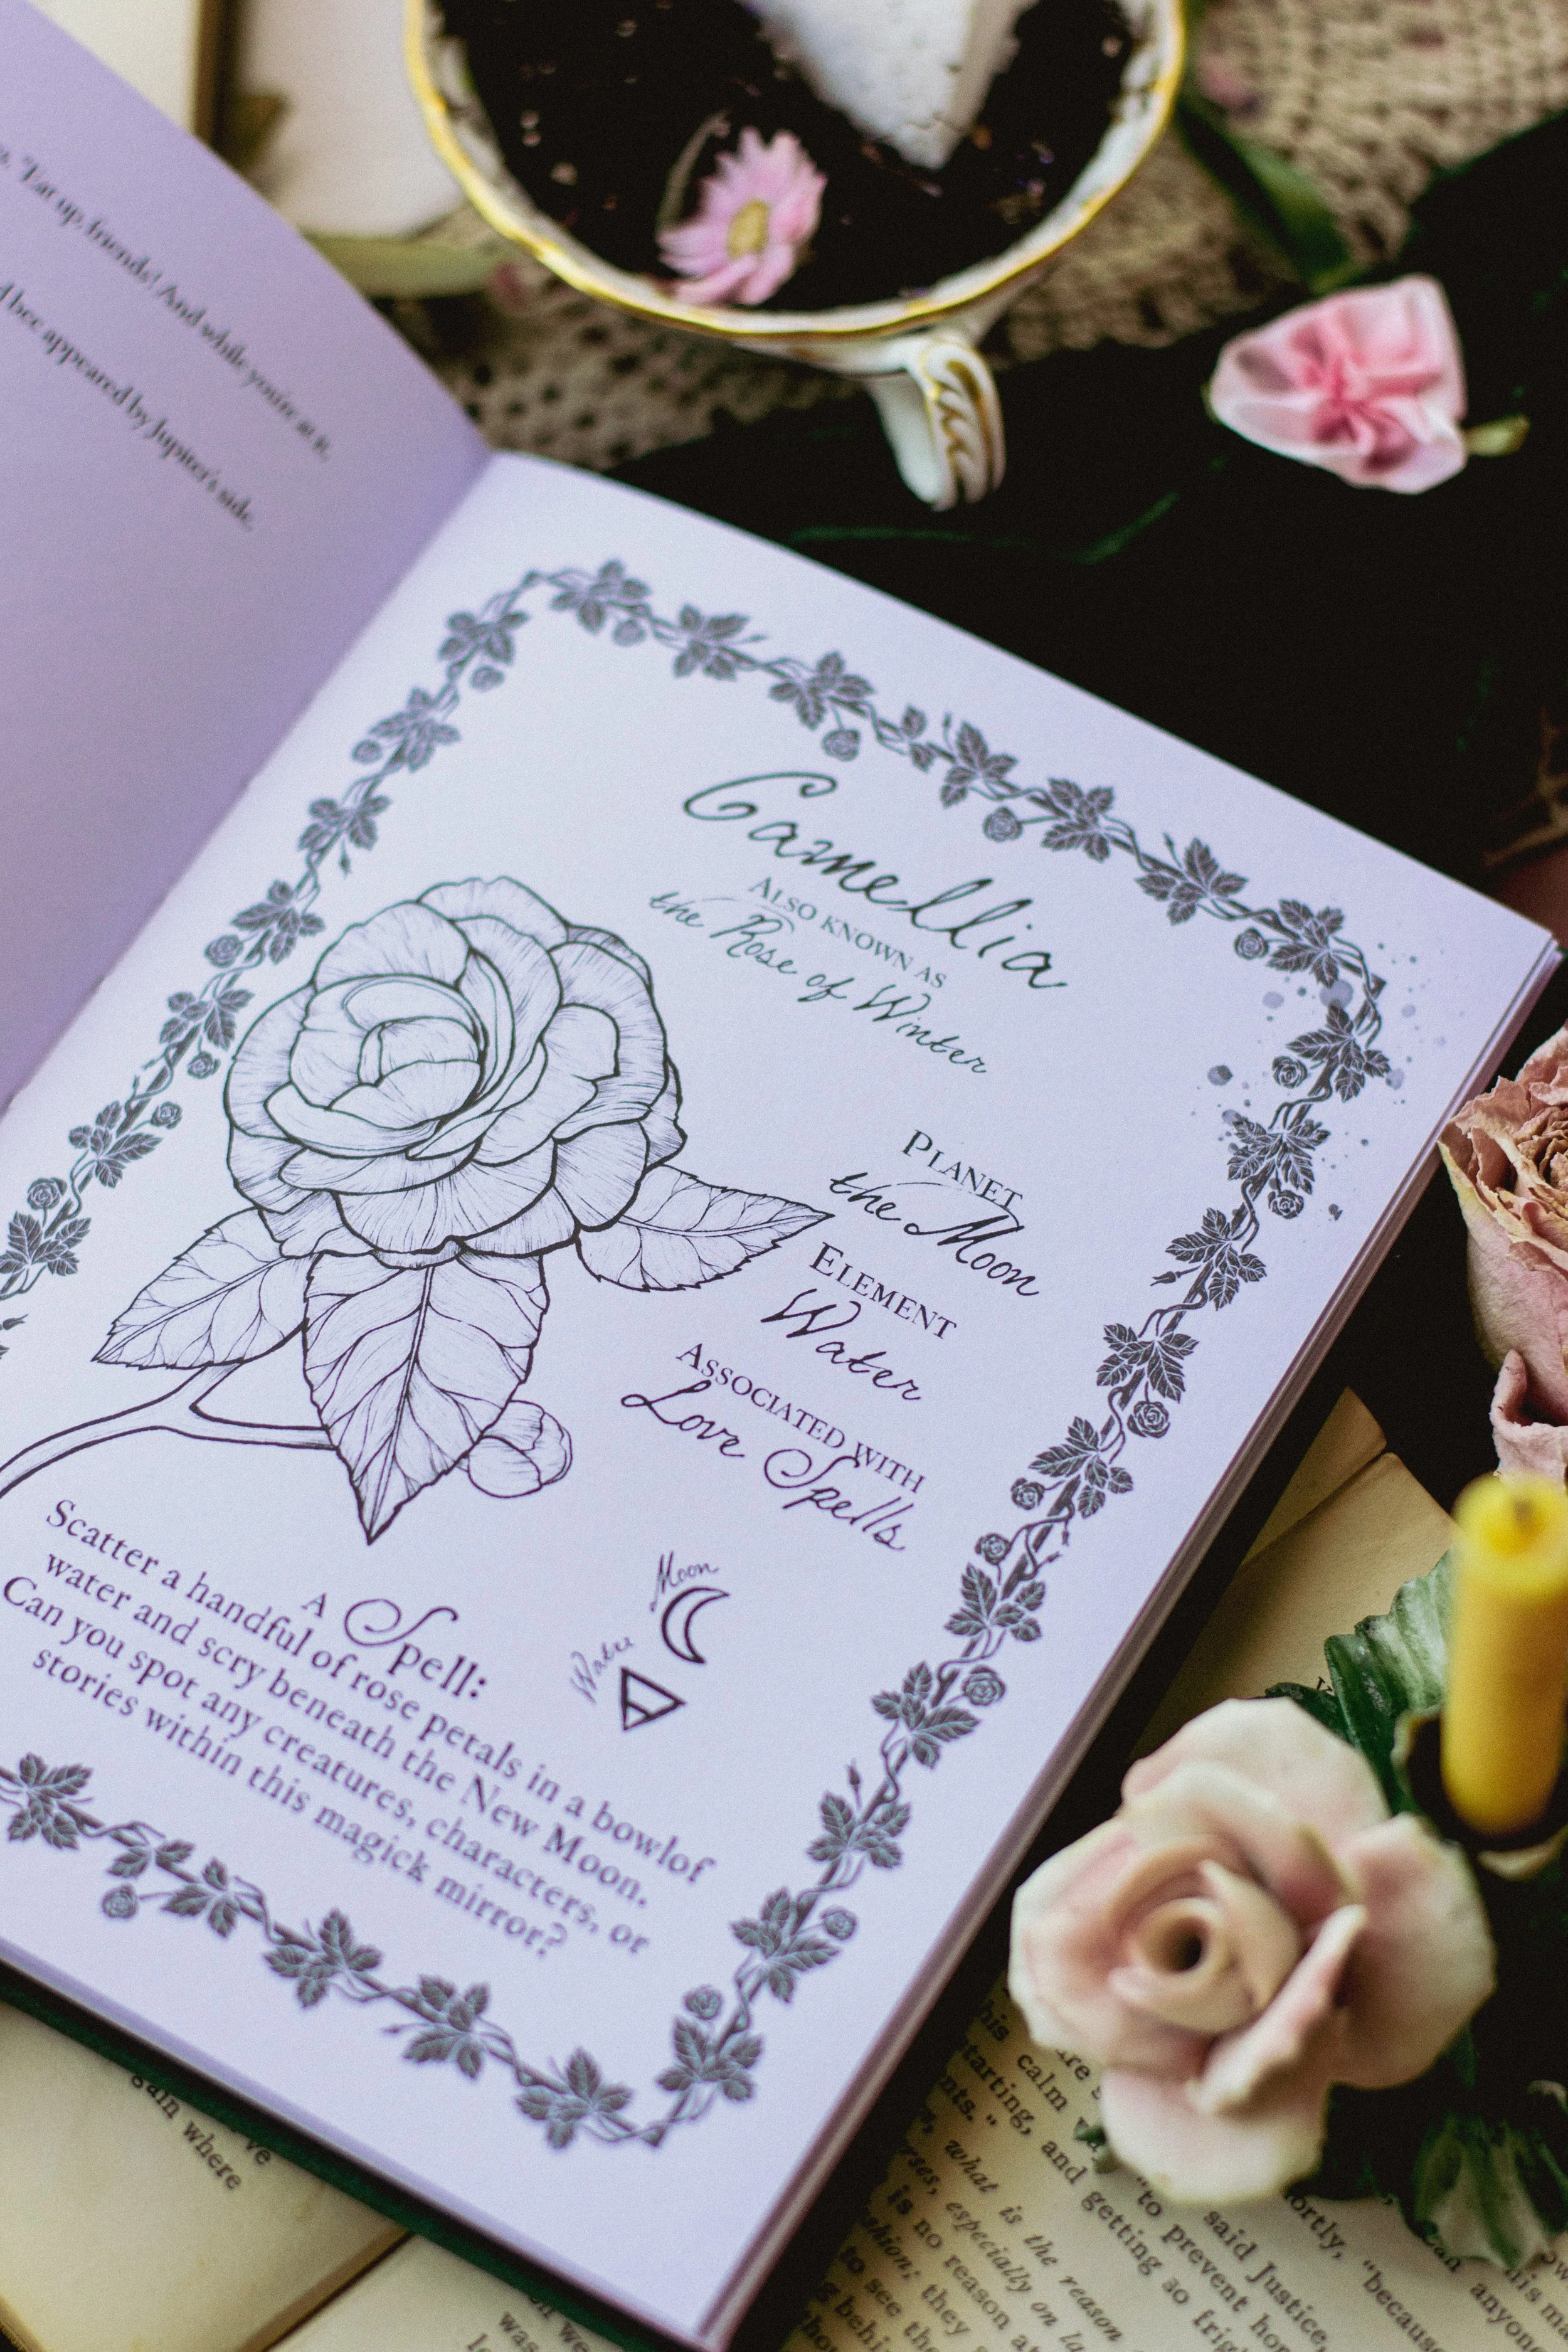 "Eat up, friends! And while you're at it,
bee appeared by Jupiter's side.
Camellia
ALSO KNOWN AS
the Rose of Winter
PLANET
the Moon
ELEMENT
Water
ASSOCIATED WITH
Love Spells
Moon
Water
A Spell:
Scatter a handful of rose petals in a bowlof
water and scry beneath the New Moon.
Can you spot any creatures, characters, or
stories within this magick mirror?
gain where
his calm
starting, and getting so
nts."
what is the reason
especially on
is no reason
they
to see the
"to prevent
said Justice,
ortly, "because
can anyone